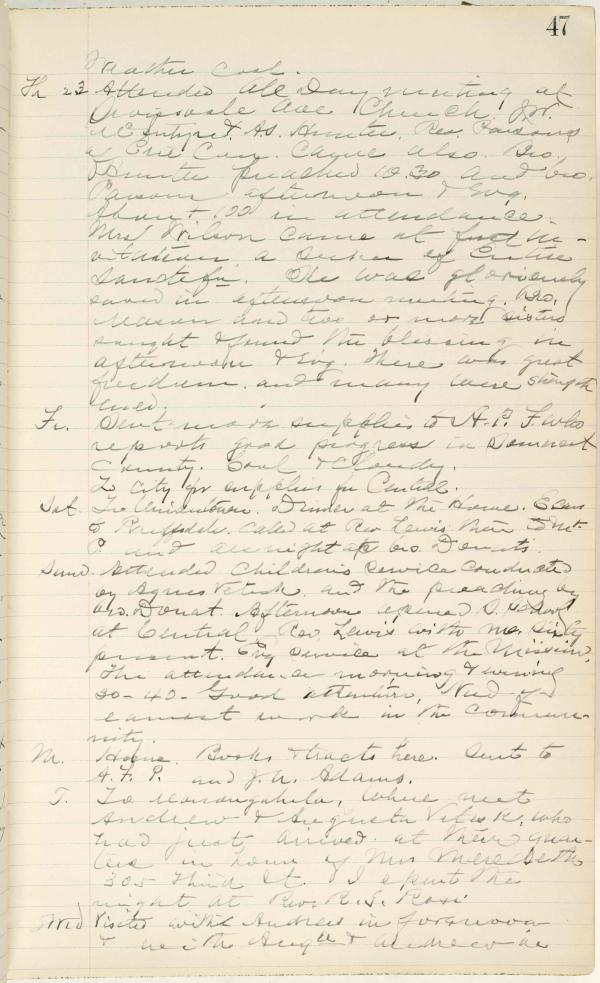 47
Weather cool.
Th 23 Attended All Day meeting at
Ave Church. Jr.
McIntyre & As. Hunter, Rev. Parsons
of Erie Con. came also. Bro.
Hunter preached 10.30 and bro.
Parson afternoon & Evg.
About 100 in attendance.
Mrs Wilson came at first in-
vitation a seeker of Entire
Sanctifn. She was gloriously
saved in afternoon meeting. Bro.
and two or more sisters
sought & found the blessing in
afternoon & Evg. There was great
freedom, and many were strength
ened.
Fr. Sent more supplies to A. P. F. who
reports good progress in Somerset
County. Cool & Cloudy.
To city for supplies for Central.
Sat. To Uniontown. Dinner at the Home.
to Called at Rev Lewis then to Mt.
P. and all night at bro Donats.
Sund. Attended Children's service conducted
by Agnes and the preaching by
bro. Donat. Afternoon opened S. School
at Central, Rev. Lewis with me, sixty
present. Evg service at the Mission.
The attendance morning & evening
30-40- Good attention, Need of
earnest work in the commu-
nity.
M. Home. Books & tracts here. Sent to
A. F. P. and J. h. Adams.
T. To Monongahela, where met
Andrew & Augusta who
had just arrived at their quar-
ters in home of Mrs Meredeth
305 Third St. I spent the
night at Rev. R. S. Ross.
Wed Visited with Andrew in forenoon
& with Augta & Andrew in